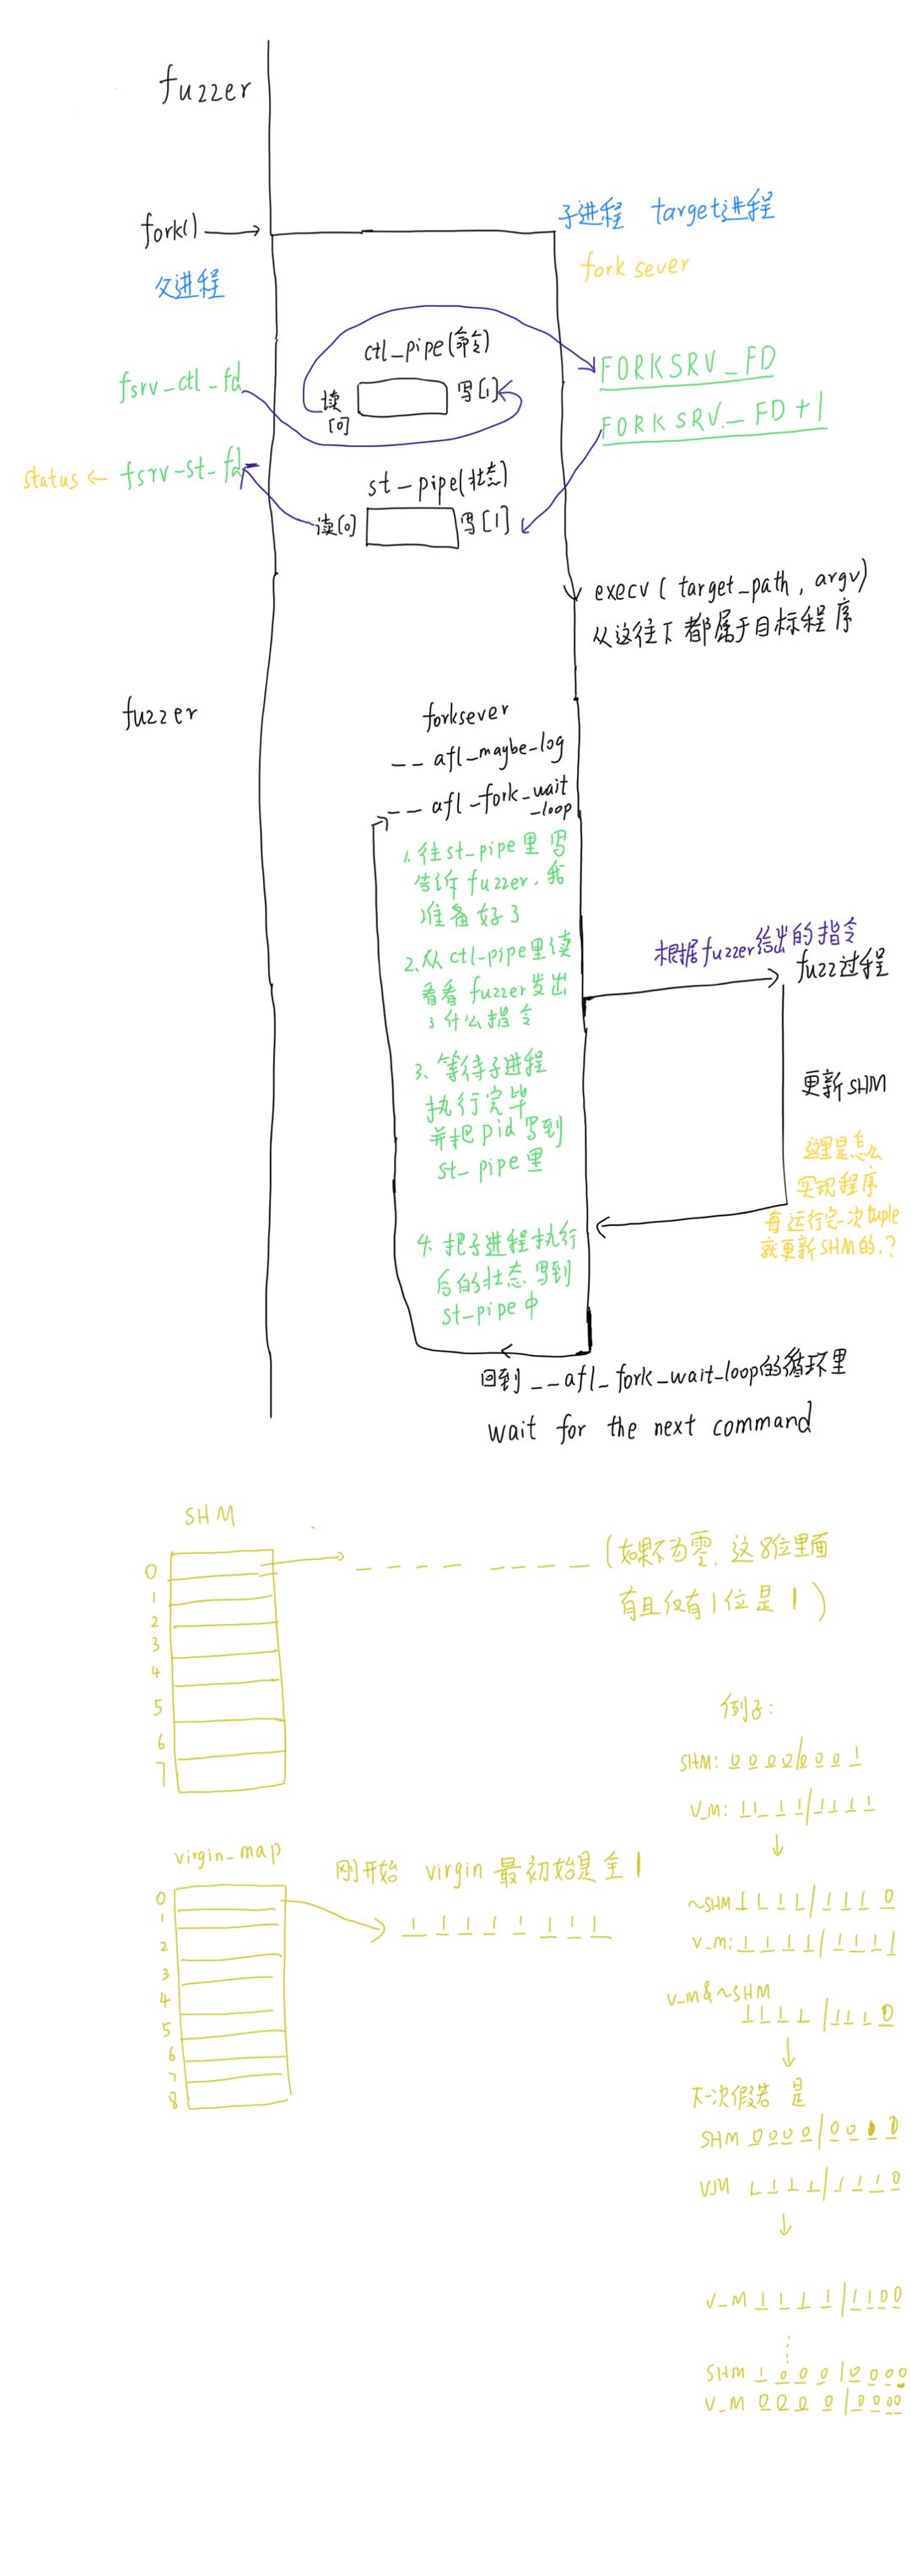 fuzzer
fork()
父进程
子进程 target进程
fork sever
ctl_pipe(命令)
读[0]
写[1]
FORKSRV_FD
FORKSRV_FD+1
fsrv_ctl_fd
status ← fsrv-st_fd
st_pipe(状态)
读[0]
写[1]
execv(target_path, argv)
从这往下都属于目标程序
fuzzer
forksever
__afl_maybe_log
__afl_fork_wait
_loop
1.往st_pipe里写
告诉fuzzer,我
准备好了
2.从ctl_pipe里读
看看fuzzer发出
了什么指令
3、等待子进程
执行完毕
并把pid写到
st_pipe里
4.把子进程执行
后的状态写到
st_pipe中
根据fuzzer给出的指令
fuzz过程
更新SHM
这里是怎么
实现程序
每运行完一次tuple
就更新SHM的,?
回到__afl_fork_wait_loop的循环里
wait for the next command
SHM
0
1
2
3
4
5
6
7
(如果不为零,这8位里面
有且仅有1位是1)
virgin_map
0
1
2
3
4
5
6
7
8
刚开始 virgin 最初始是全1
1 1 1 1 1 1 1 1
例子:
SHM: 0000/0001
V_M: 1111/1111
~SHM 1111/1110
V_M: 1111/1111
V_M&~SHM
1111/1110
下一次假若是
SHM 0000/0010
V_M 1111/1110
V_M 1111/1100
SHM 1000/0000
V_M 0000/0000